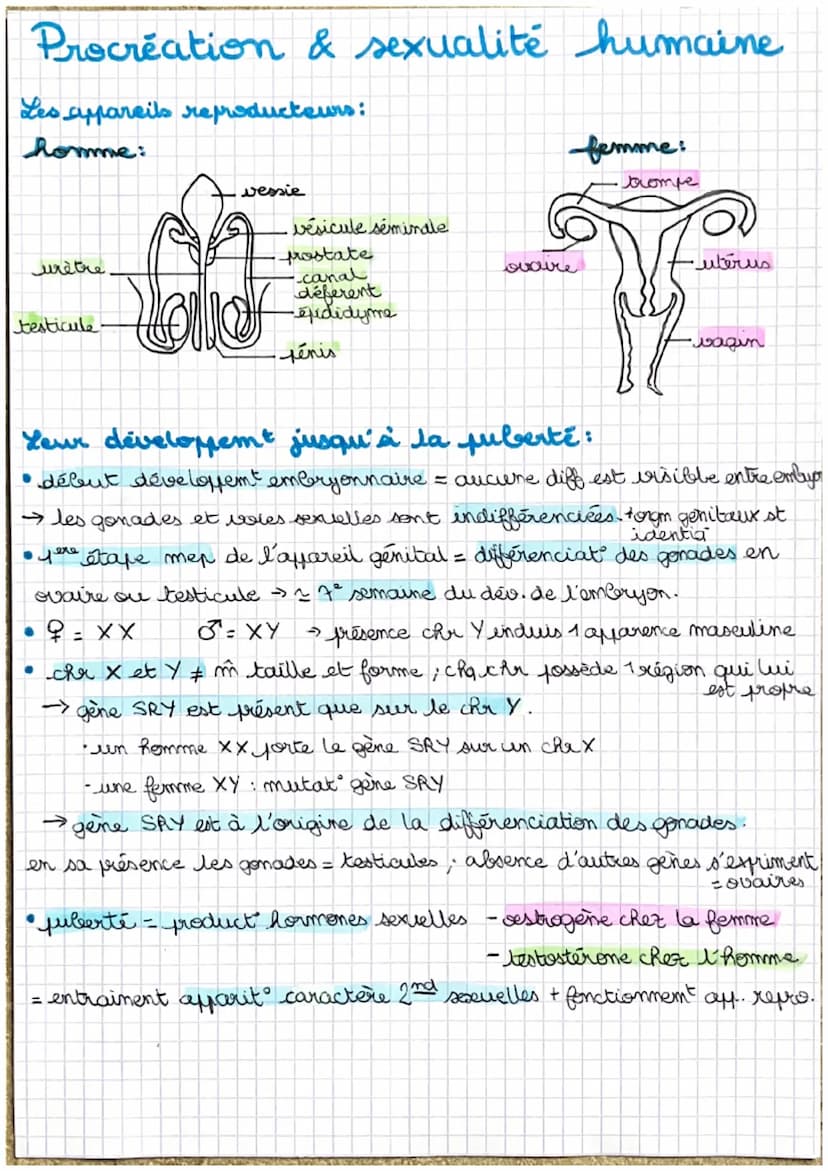 Procréation & sexualité humaine
Les appareils reproducteurs :
homme :
femme :
vessie
vésicule séminale
prostate
canal
déférent
épididyme
pénis
urètre
testicule
trompe
ovaire
utérus
vagin
Leur développemt jusqu'à la puberté :
• début développemt embryonnaire = aucune diff est visible entre embryo
→ les gonades et voies sexuelles sont indifférenciées. + orgn génitaux st
identiq
• 1ère étape mep de l'appareil génital = différenciat° des gonades en
ovaire ou testicule → ≃ 7e semaine du dév. de l'embryon.
• ♀ = XX ♂ = XY → présence chr Y induis 1 apparence masculine
• chr X et Y ≠ m̂ taille et forme ; chq chr possède 1 région qui lui
est propre
→ gène SRY est présent que sur le chr Y.
· un homme XX porte le gène SRY sur un chr X
- une femme XY : mutat° gène SRY
→ gène SRY est à l'origine de la différenciation des gonades.
en sa présence les gonades = testicules ; absence d'autres gènes s'expriment
= ovaires
• puberté = product° hormones sexuelles - oestrogène chez la femme
- testostérone chez l'homme
= entrainent apparit° caractère 2nd sexuelles + fonctionnemt app. repro.